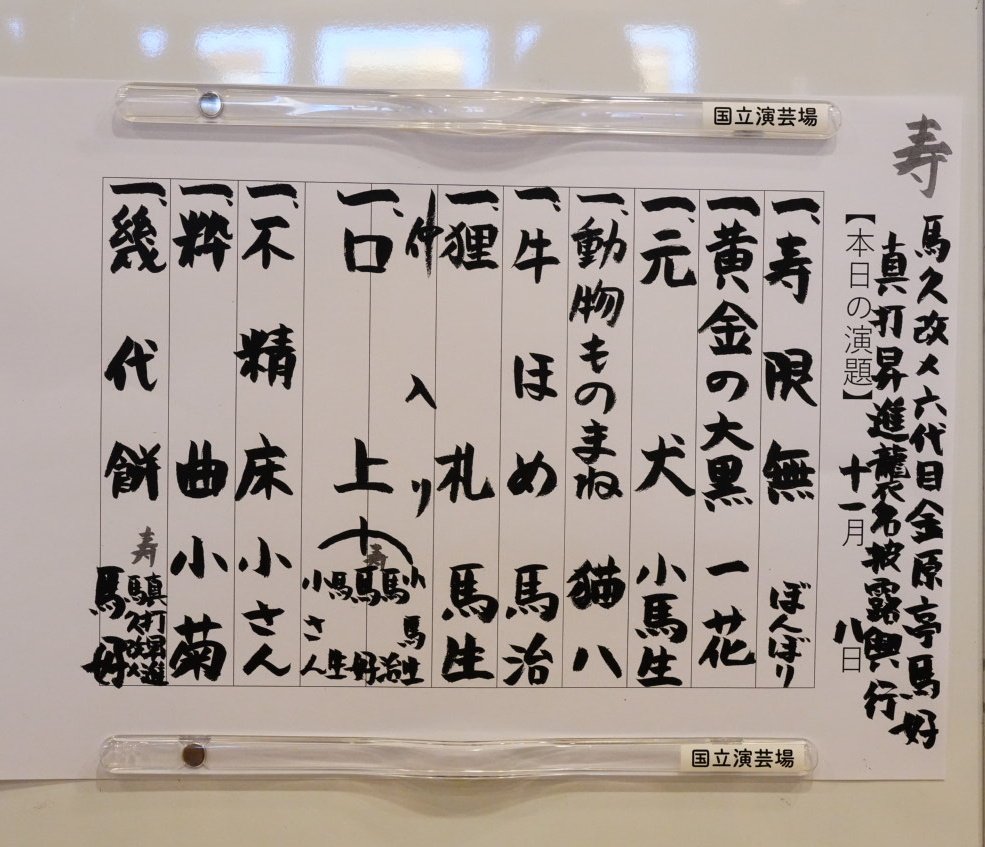 国立演芸場
寿
馬久改メ六代目金原亭馬好
真打昇進襲名披露興行
【本日の演題】 十一月 八日
一、寿限無 ぼんぼり
一、黄金の大黒 一花
一、元犬 小馬生
一、動物ものまね 猫八
一、牛ほめ 馬治
一、狸札 馬生
仲入り
一、口上
寿
小馬生
馬治
馬好
馬生
小さん
一、不精床 小さん
一、粋曲 小菊
一、幾代餅
寿
真打昇進
馬久改メ
馬好
国立演芸場